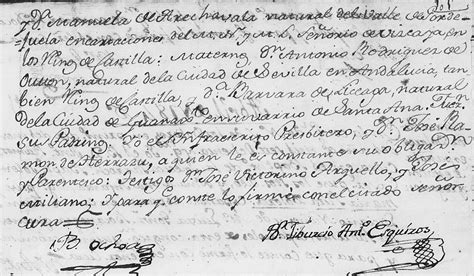 y Dª Manuela de Arechavala natural del Valle de Gorde
juela encarnaciones del M. N. y M. L. Señorio de Viscaya en
los Rnos de Castilla: Maternos, Dn Antonio Rodriguez de
natural de la Ciudad de Sevilla en Andalucia, tan
bien Rno de Castilla, y Dª Barvara de natural
de la Ciudad de Guanaxto en su varrio de Santa Ana. Fueron
sus Padrinos Yó el Infraescrito Presbitero, y Dn José Ra
mon de Herrazu, a quien le es constante su obligaon
y Parentesco: testigo Dn José Victorino Arguello, y José
Emiliano: Y para q conste lo firmé con el citado señor
cura
B. Ochoa
Br. Tiburcio Anto Esquiros